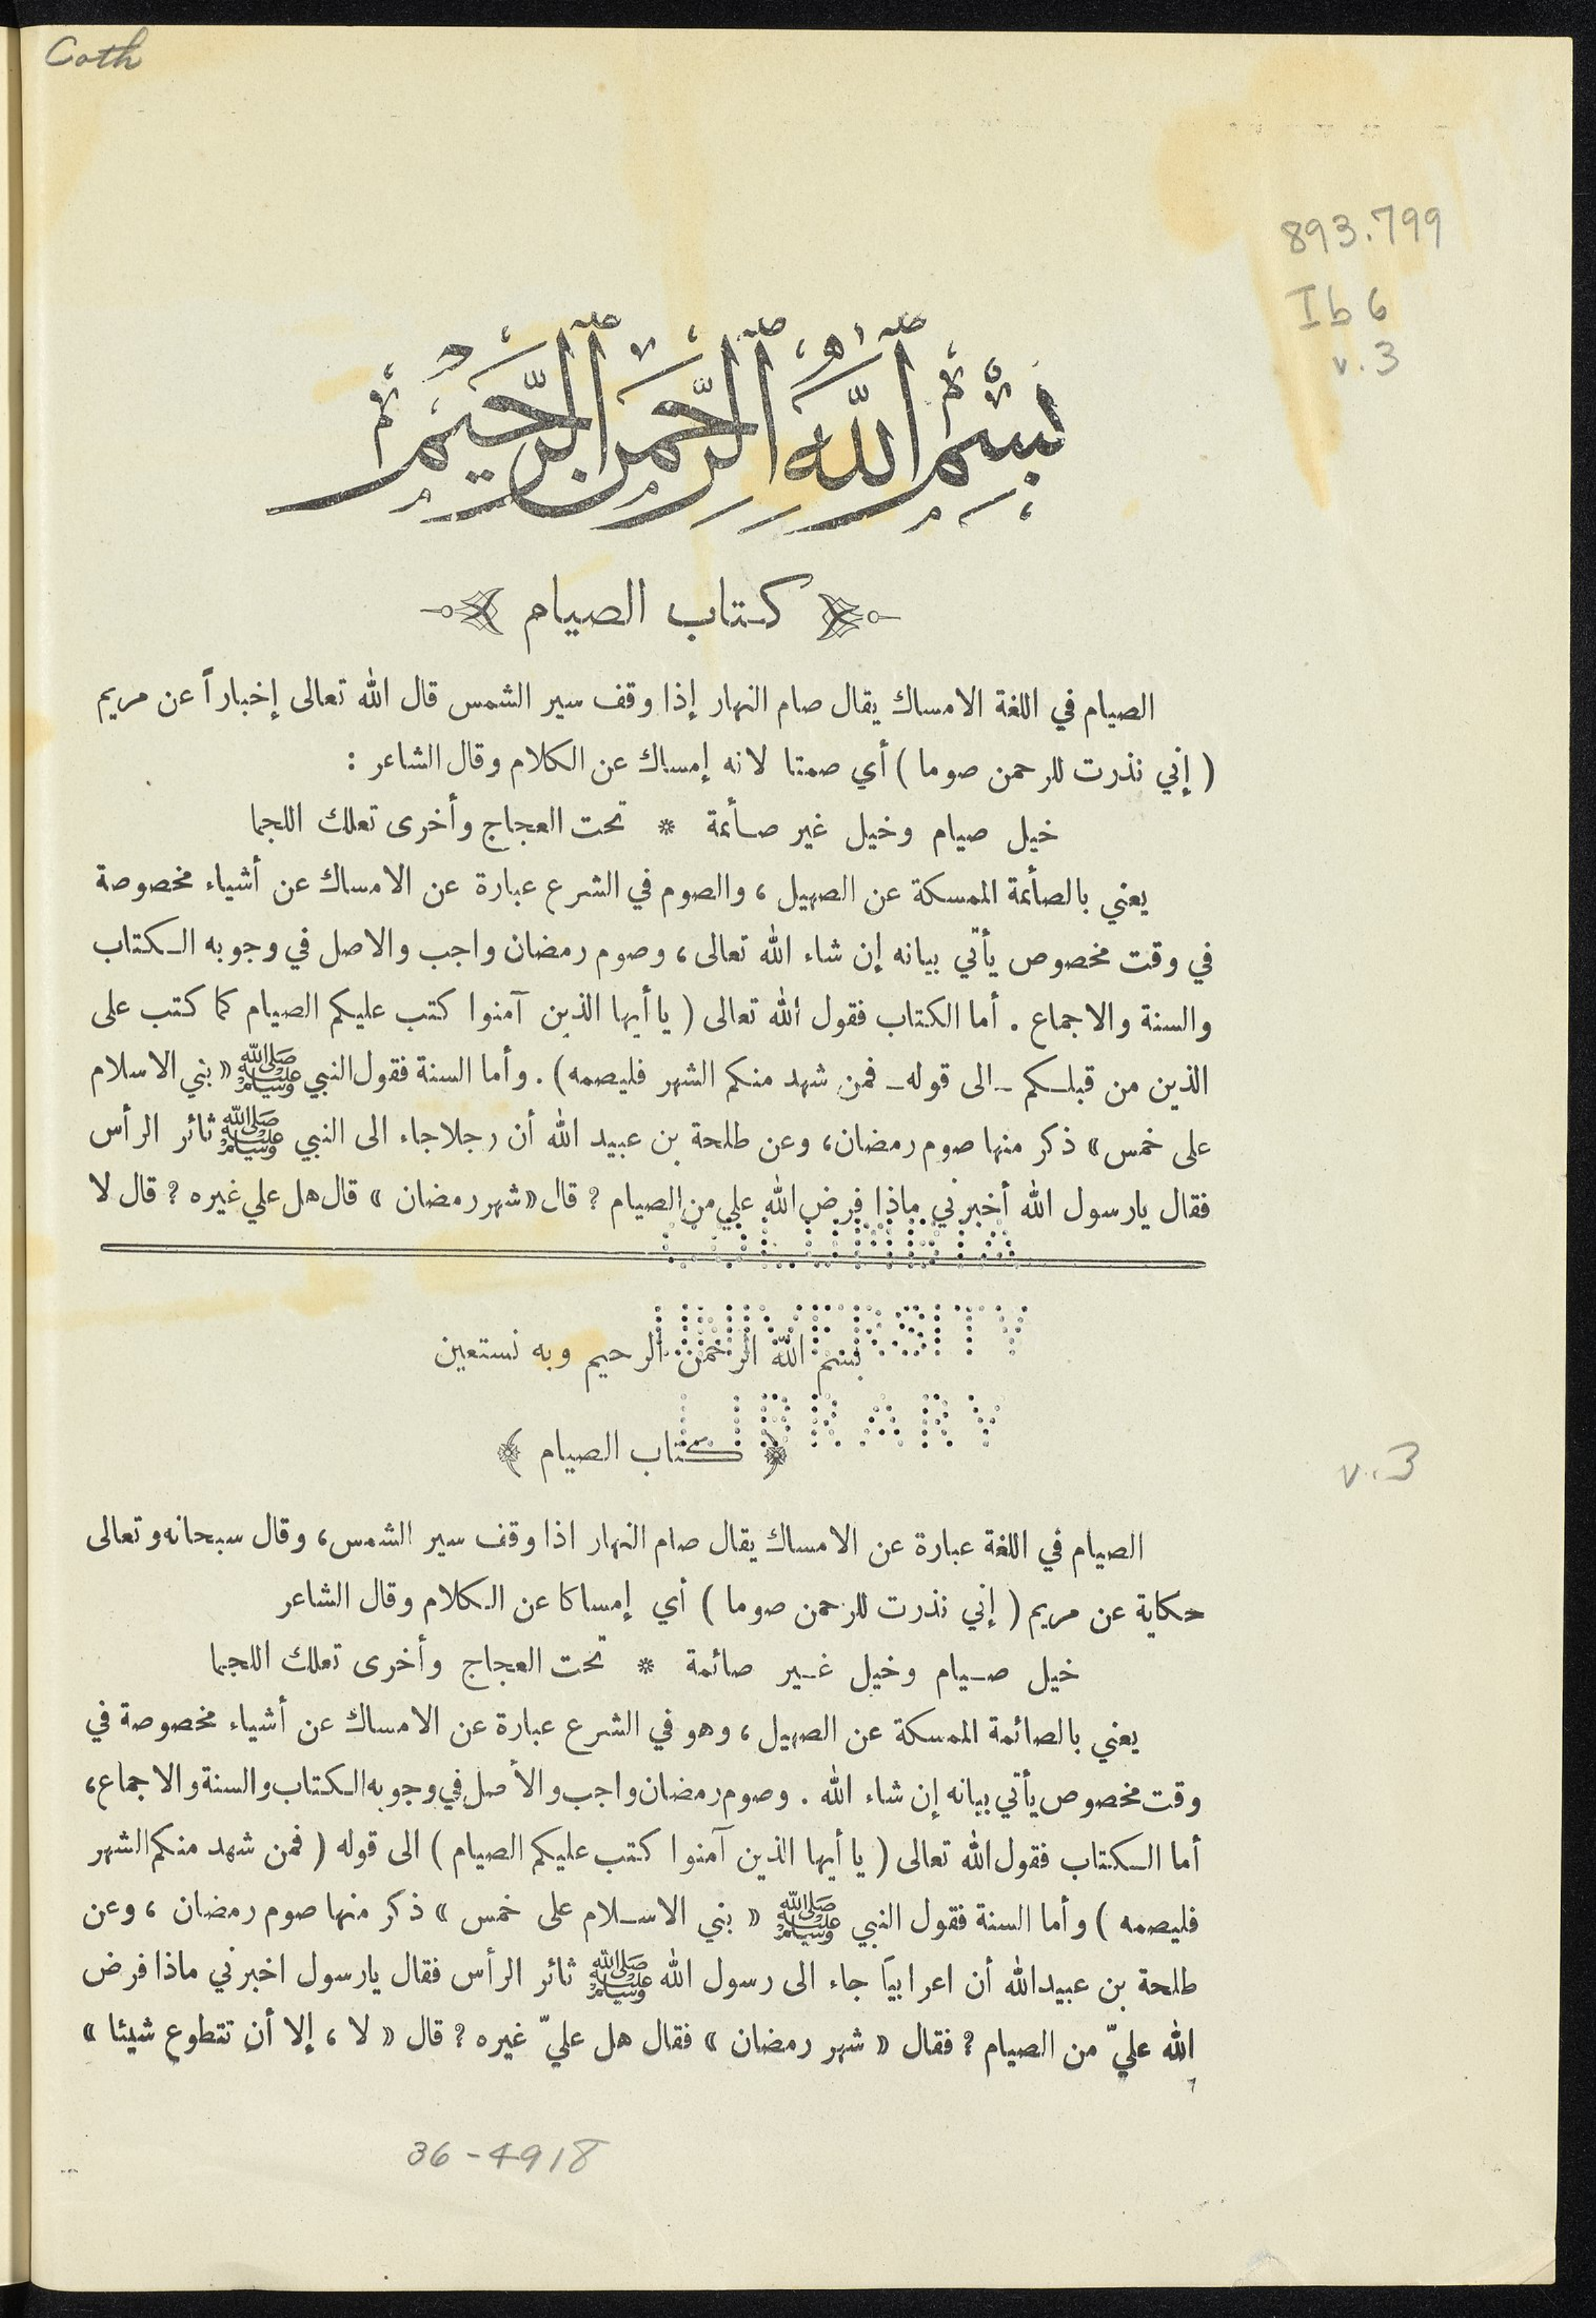 Coth
893.799
Ib6
v.3
بسم الله الرحمن الرحيم
كتاب الصيام
الصيام في اللغة الامساك يقال صام النهار إذا وقف سير الشمس قال الله تعالى إخباراً عن مريم
( إني نذرت للرحمن صوما ) أي صمتا لانه إمساك عن الكلام وقال الشاعر :
خيل صيام وخيل غير صائمة * تحت العجاج وأخرى تعلك اللجما
يعني بالصائمة الممسكة عن الصهيل ، والصوم في الشرع عبارة عن الامساك عن أشياء مخصوصة
في وقت مخصوص يأتي بيانه إن شاء الله تعالى ، وصوم رمضان واجب والاصل في وجوبه الكتاب
والسنة والاجماع . أما الكتاب فقول الله تعالى ( يا أيها الذين آمنوا كتب عليكم الصيام كما كتب على
الذين من قبلكم - الى قوله - فمن شهد منكم الشهر فليصمه ) . وأما السنة فقول النبي ﷺ « بني الاسلام
على خمس » ذكر منها صوم رمضان ، وعن طلحة بن عبيد الله أن رجلا جاء الى النبي ﷺ ثائر الرأس
فقال يارسول الله أخبرني ماذا فرض الله علي من الصيام ؟ قال « شهر رمضان » قال هل علي غيره ؟ قال لا
بسم الله الرحمن الرحيم وبه نستعين
﴿ كتاب الصيام ﴾
v.3
الصيام في اللغة عبارة عن الامساك يقال صام النهار اذا وقف سير الشمس ، وقال سبحانه وتعالى
حكاية عن مريم ( إني نذرت للرحمن صوما ) أي إمساكا عن الكلام وقال الشاعر
خيل صيام وخيل غير صائمة * تحت العجاج وأخرى تعلك اللجما
يعني بالصائمة الممسكة عن الصهيل ، وهو في الشرع عبارة عن الامساك عن أشياء مخصوصة في
وقت مخصوص يأتي بيانه إن شاء الله . وصوم رمضان واجب والأصل في وجوبه الكتاب والسنة والاجماع ،
أما الكتاب فقول الله تعالى ( يا أيها الذين آمنوا كتب عليكم الصيام ) الى قوله ( فمن شهد منكم الشهر
فليصمه ) وأما السنة فقول النبي ﷺ « بني الاسلام على خمس » ذكر منها صوم رمضان ، وعن
طلحة بن عبيدالله أن اعرابيا جاء الى رسول الله ﷺ ثائر الرأس فقال يارسول اخبرني ماذا فرض
الله عليّ من الصيام ؟ فقال « شهر رمضان » فقال هل عليّ غيره ؟ قال « لا ، إلا أن تتطوع شيئا »
36-4918